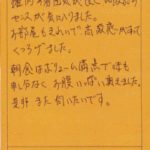 センスが気に入りました。
お部屋もきれいで高級感があって
くつろげました。
朝食はボリューム満点で味も
申し分なくお腹いっぱい頂きました。
是非また伺いたいです。